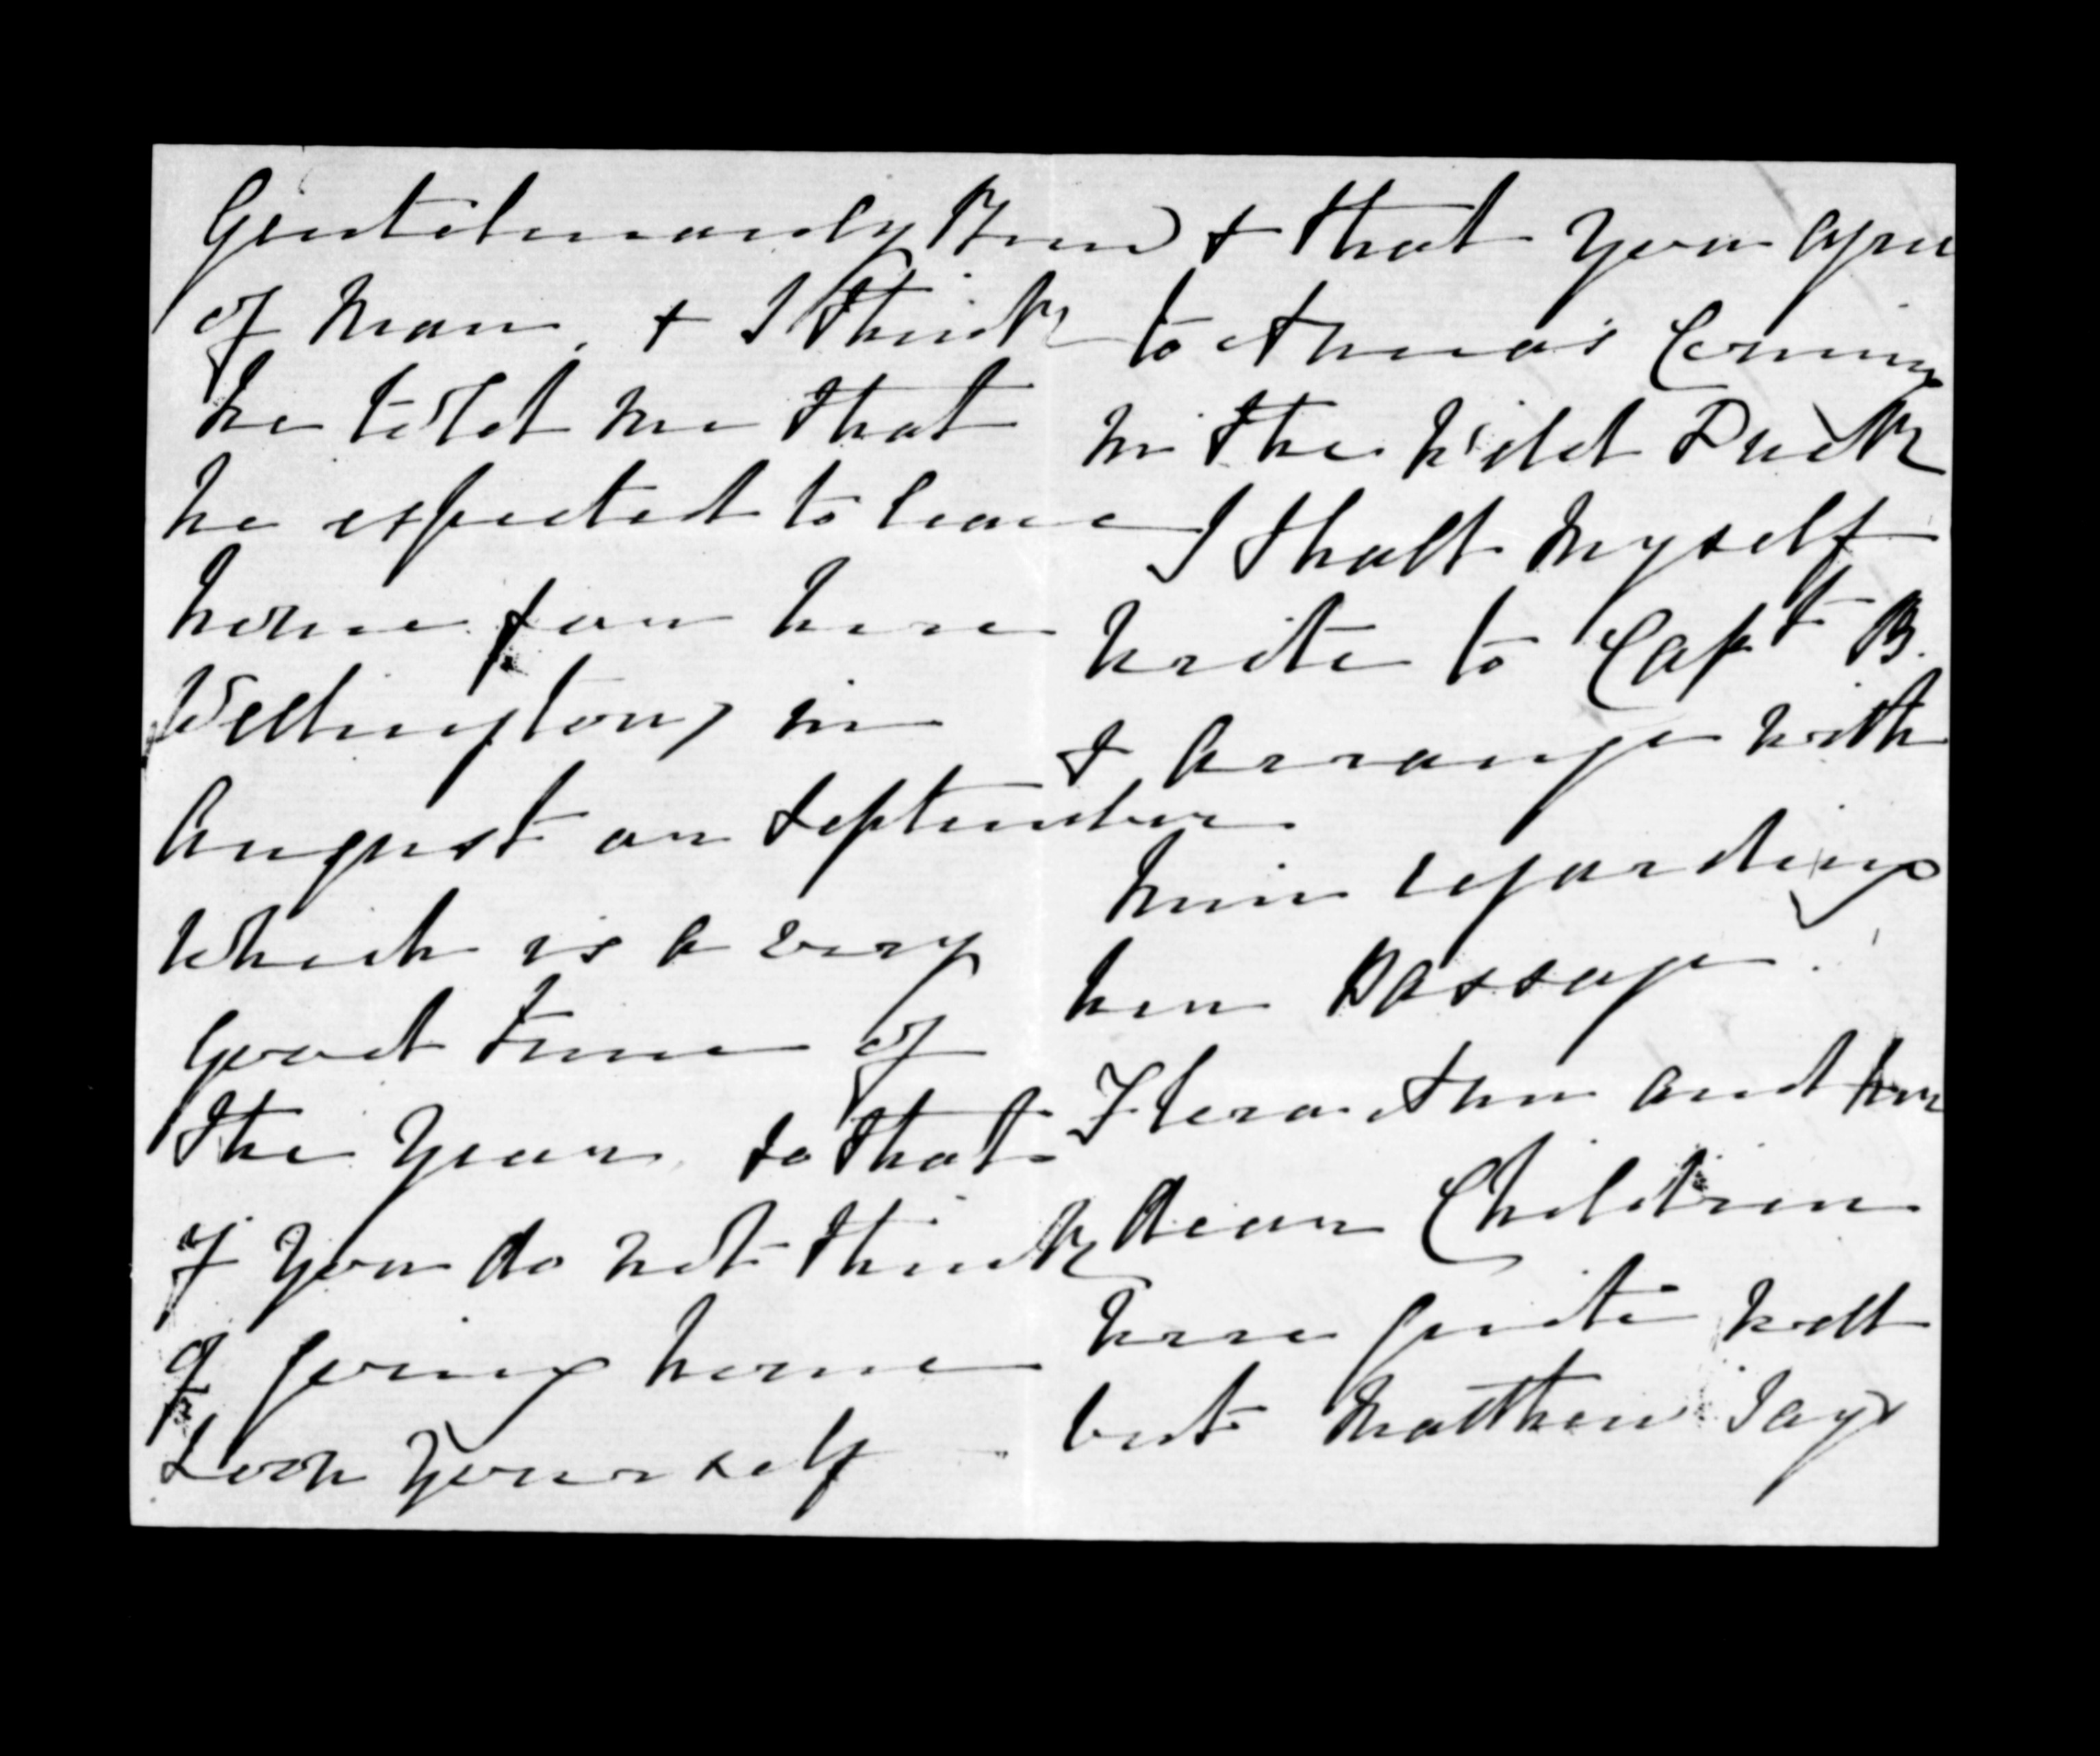 Gentlemanly kind
of man, & I think
he told me that
he expected to leave
home for here
Wellington, in
August or September
which is a very
good time of
the year, so that
if you do not think
of going home
soon yourself
& that you agree
to Anna's Coming
in the Wild Duck
I shall myself
write to Capt B.
& arrange with
him regarding
her Passage.
Flora Ann and her
dear Children
were quite well
but Matthew Says